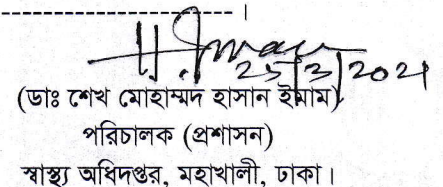 25/3/2021
(ডাঃ শেখ মোহাম্মদ হাসান ইমাম)
পরিচালক (প্রশাসন)
স্বাস্থ্য অধিদপ্তর, মহাখালী, ঢাকা।